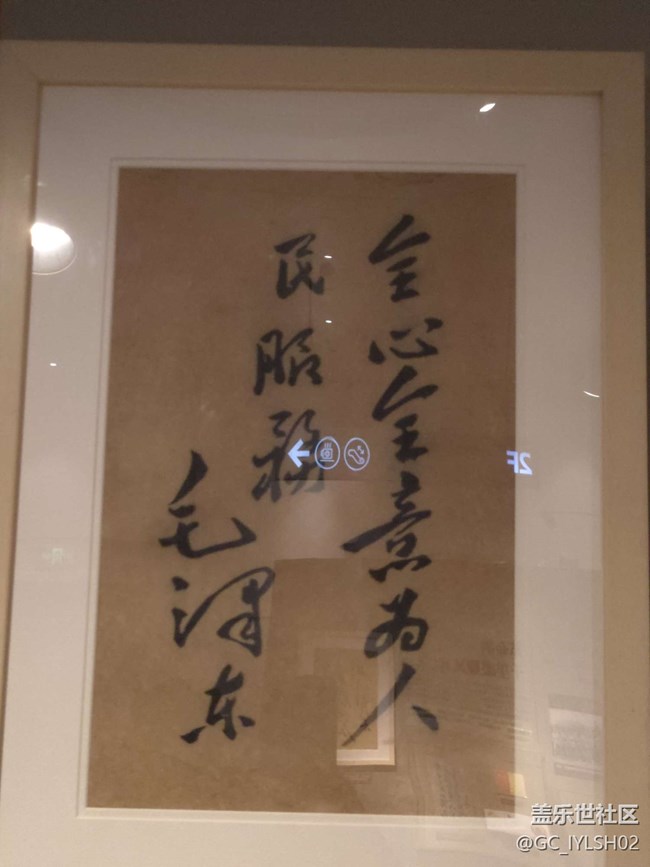 全心全意为人
民服務
毛泽东
2F
盖乐世社区
@GC_IYLSH02